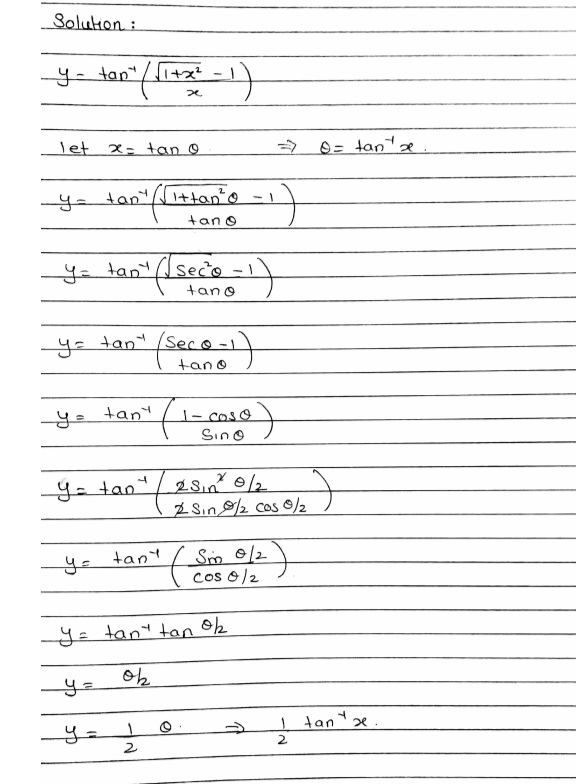 Solution :
y = tan⁻¹ (√(1+x²) - 1 / x)
let x = tan θ. ⇒ θ = tan⁻¹ x.
y = tan⁻¹ (√(1+tan²θ) - 1 / tan θ)
y = tan⁻¹ (√(Sec²θ) - 1 / tan θ)
y = tan⁻¹ (Sec θ - 1 / tan θ)
y = tan⁻¹ (1 - cos θ / Sin θ)
y = tan⁻¹ (2 Sin² θ/2 / 2 Sin θ/2 cos θ/2)
y = tan⁻¹ (Sin θ/2 / cos θ/2)
y = tan⁻¹ tan θ/2
y = θ/2
y = 1/2 θ. ⇒ 1/2 tan⁻¹ x.